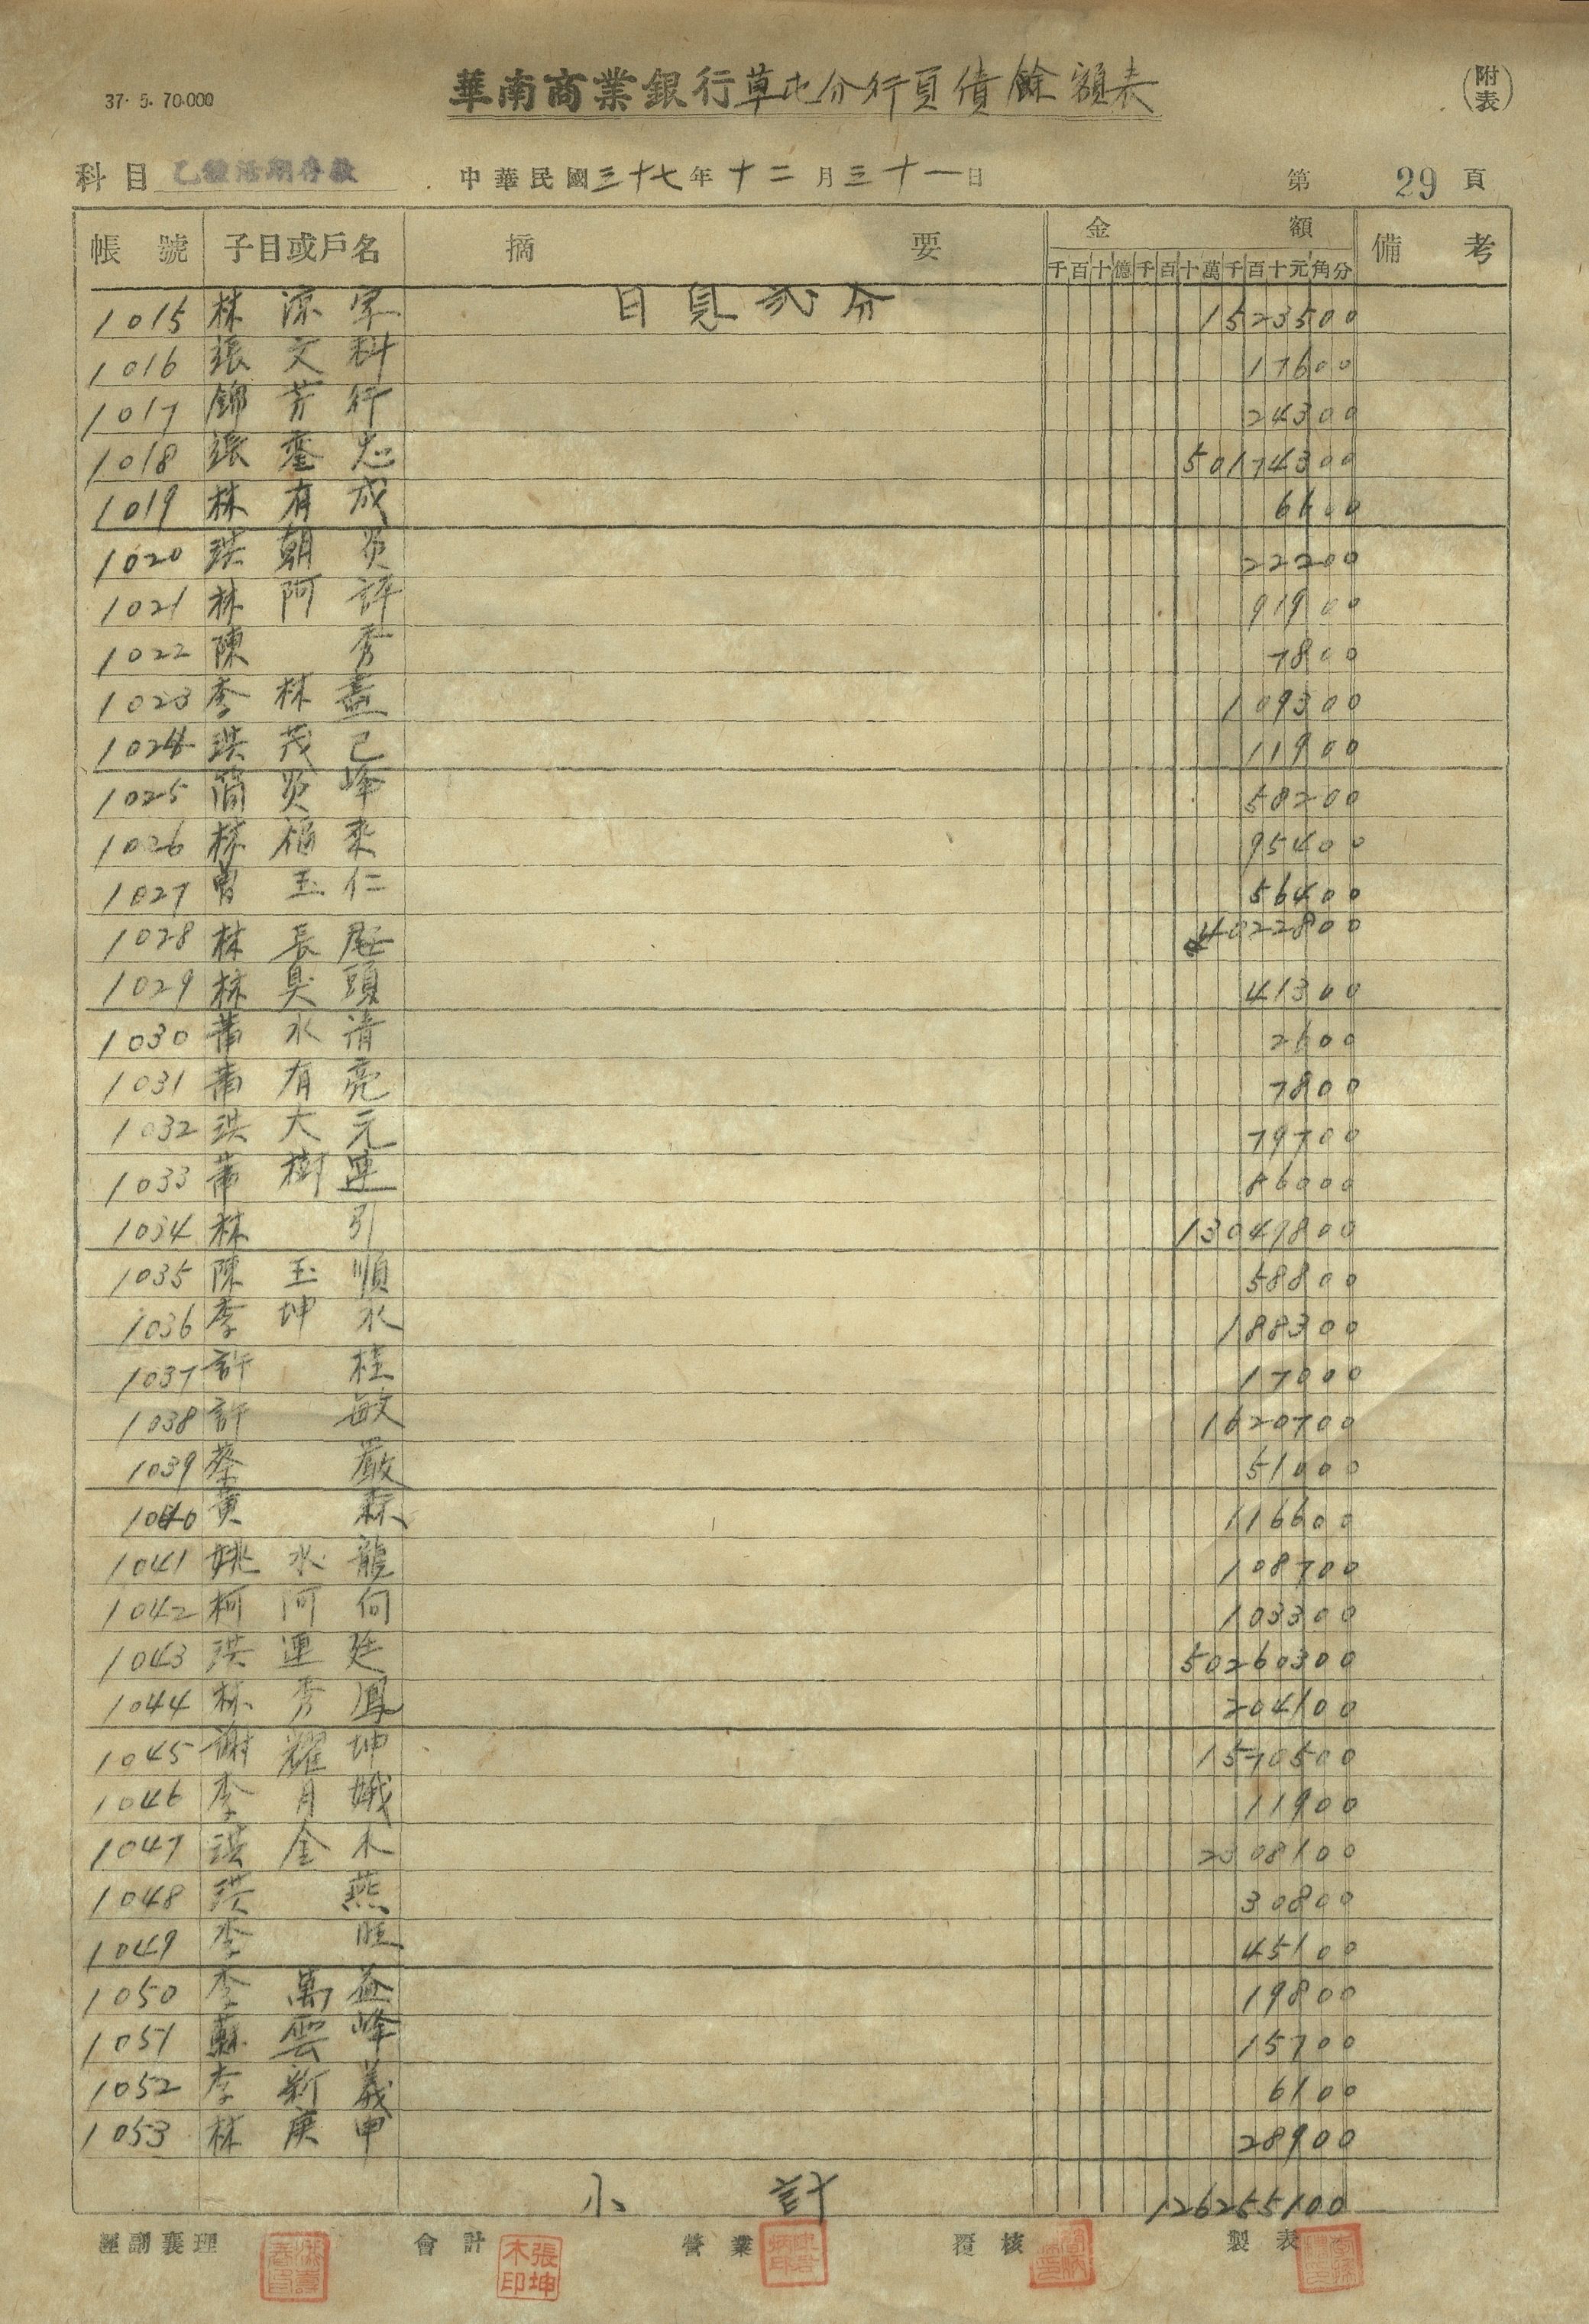 37. 5. 70.000
華南商業銀行草屯分行負債餘額表
(附表)
科目 乙種活期存款 中華民國三十七年十二月三十一日 第 29 頁
帳號 子目或戶名 摘要 金額 備考
千百十億千百十萬千百十元角分
1015 林 日息弍分 1523500
1016 張文科 17600
1017 錦芳行 24300
1018 張奎忠 50174300
1019 林有成 6600
1020 洪朝 22200
1021 林阿許 91900
1022 陳秀 7800
1023 李林蓋 109300
1024 洪茂己 11900
1025 簡炎峰 58200
1026 林福來 95400
1027 曾玉仁 56400
1028 林長 4022800
1029 林臭頭 41300
1030 蕭水清 2600
1031 蕭有亮 7800
1032 洪大元 79700
1033 蕭樹連 86000
1034 林引 13049800
1035 陳玉順 58800
1036 李坤水 188300
1037 許桂 17000
1038 許敏 1620700
1039 蔡嚴 51000
1040 黃森 116600
1041 姚水龍 108700
1042 柯阿 103300
1043 洪連廷 50260300
1044 林秀鳳 204100
1045 謝耀坤 1570500
1046 李月娥 11900
1047 洪金木 2308100
1048 洪燕 30800
1049 李旺 45100
1050 李萬益 19800
1051 蘇雲峰 15700
1052 李新義 6100
1053 林庚申 28900
小計 126255100
經副襄理 會計 營業 覆核 製表
張坤木印